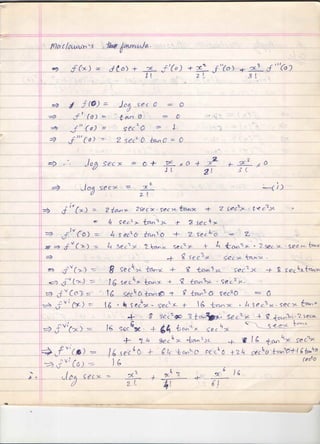 Maclaurin's formula.
⇒ f(x) = f(0) + x/1! f'(0) + x²/2! f''(0) + x³/3! f'''(0)
⇒ f(0) = log sec 0 = 0
⇒ f'(0) = tan 0 = 0
⇒ f''(0) = sec²0 = 1
⇒ f'''(0) = 2 sec²0 tan 0 = 0
⇒ ∴ log sec x = 0 + x/1! × 0 + x²/2! + x³/3! × 0
⇒ log sec x = x²/2! —(i)
⇒ f^iv(x) = 2 tan x · 2 sec x · sec x tan x + 2 sec²x · sec²x
= 4 sec²x tan²x + 2 sec⁴x
⇒ f^iv(0) = 4 sec²0 tan²0 + 2 sec⁴0 = 2
⇒ f^v(x) = 4 sec²x 2 tan x sec²x + 4 tan²x · 2 sec x · sec x tan x
+ 8 sec³x sec x tan x
⇒ f^v(x) = 8 sec⁴x tan x + 8 tan³x sec²x + 8 sec⁴x tan x
⇒ f^v(x) = 16 sec⁴x tan x + 8 tan³x sec²x
⇒ f^v(0) = 16 sec⁴0 tan 0 + 8 tan³0 sec²0 = 0
⇒ f^vi(x) = 16 sec⁴x · sec²x + 16 tan x · 4 sec³x · sec x tan x
+ 8 3 tan²x sec²x + 8 tan³x · 2 sec x
sec x tan x
⇒ f^vi(x) = 16 sec⁶x + 64 tan²x sec⁴x
+ 24 sec⁴x tan²x + 16 tan⁴x sec²x
⇒ f^vi(0) = 16 sec⁶0 + 64 tan²0 sec⁴0 + 24 sec⁴0 tan²0 + 16 tan⁴0
sec²0
⇒ f^vi(0) = 16
∴ log sec x = x²/2! + x⁴/4! 2 + x⁶/6! 16